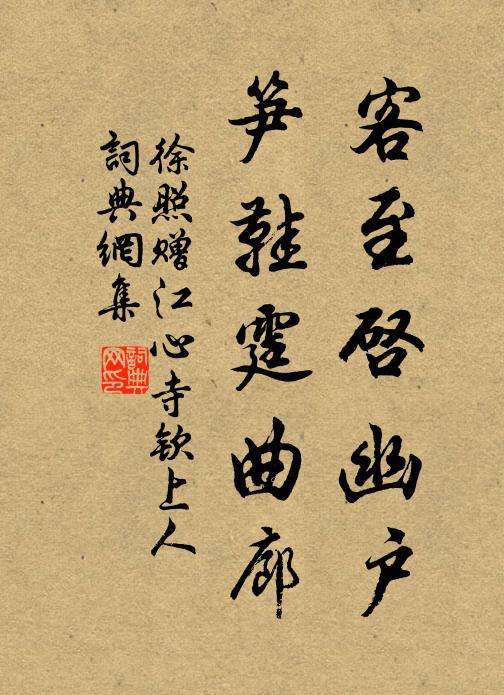 客至啓幽户
笋鞋霆曲廊
徐照赠江心寺钦上人
詞典網集
詞典網印